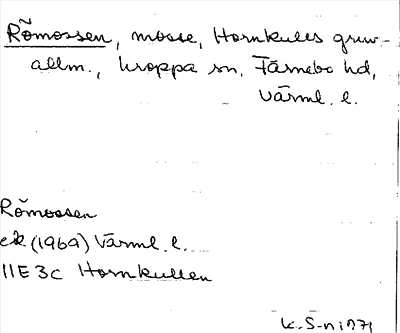 Rõmossen, mosse, Hornkulls gruv-
allm., Kroppa sn, Färnebo hd,
Värml. l.
Rõmossen
ek (1969) Värml. l.
11E 3c Hornkullen
K. S-n 1971